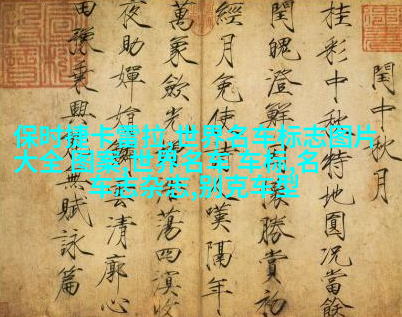 閏中秋月
桂彩中秋特地圓況當餘
閏魄澄鮮懷勝賞初
經月免使人嘆隔年
萬象斂光蕩四溟收
夜助嬋娟雲清廓心
田豫乘興無賦詠篇
保时捷卡雷拉,世界名车标志图片
大全 图案,世界名车 车标,名
车志杂志,别克车型